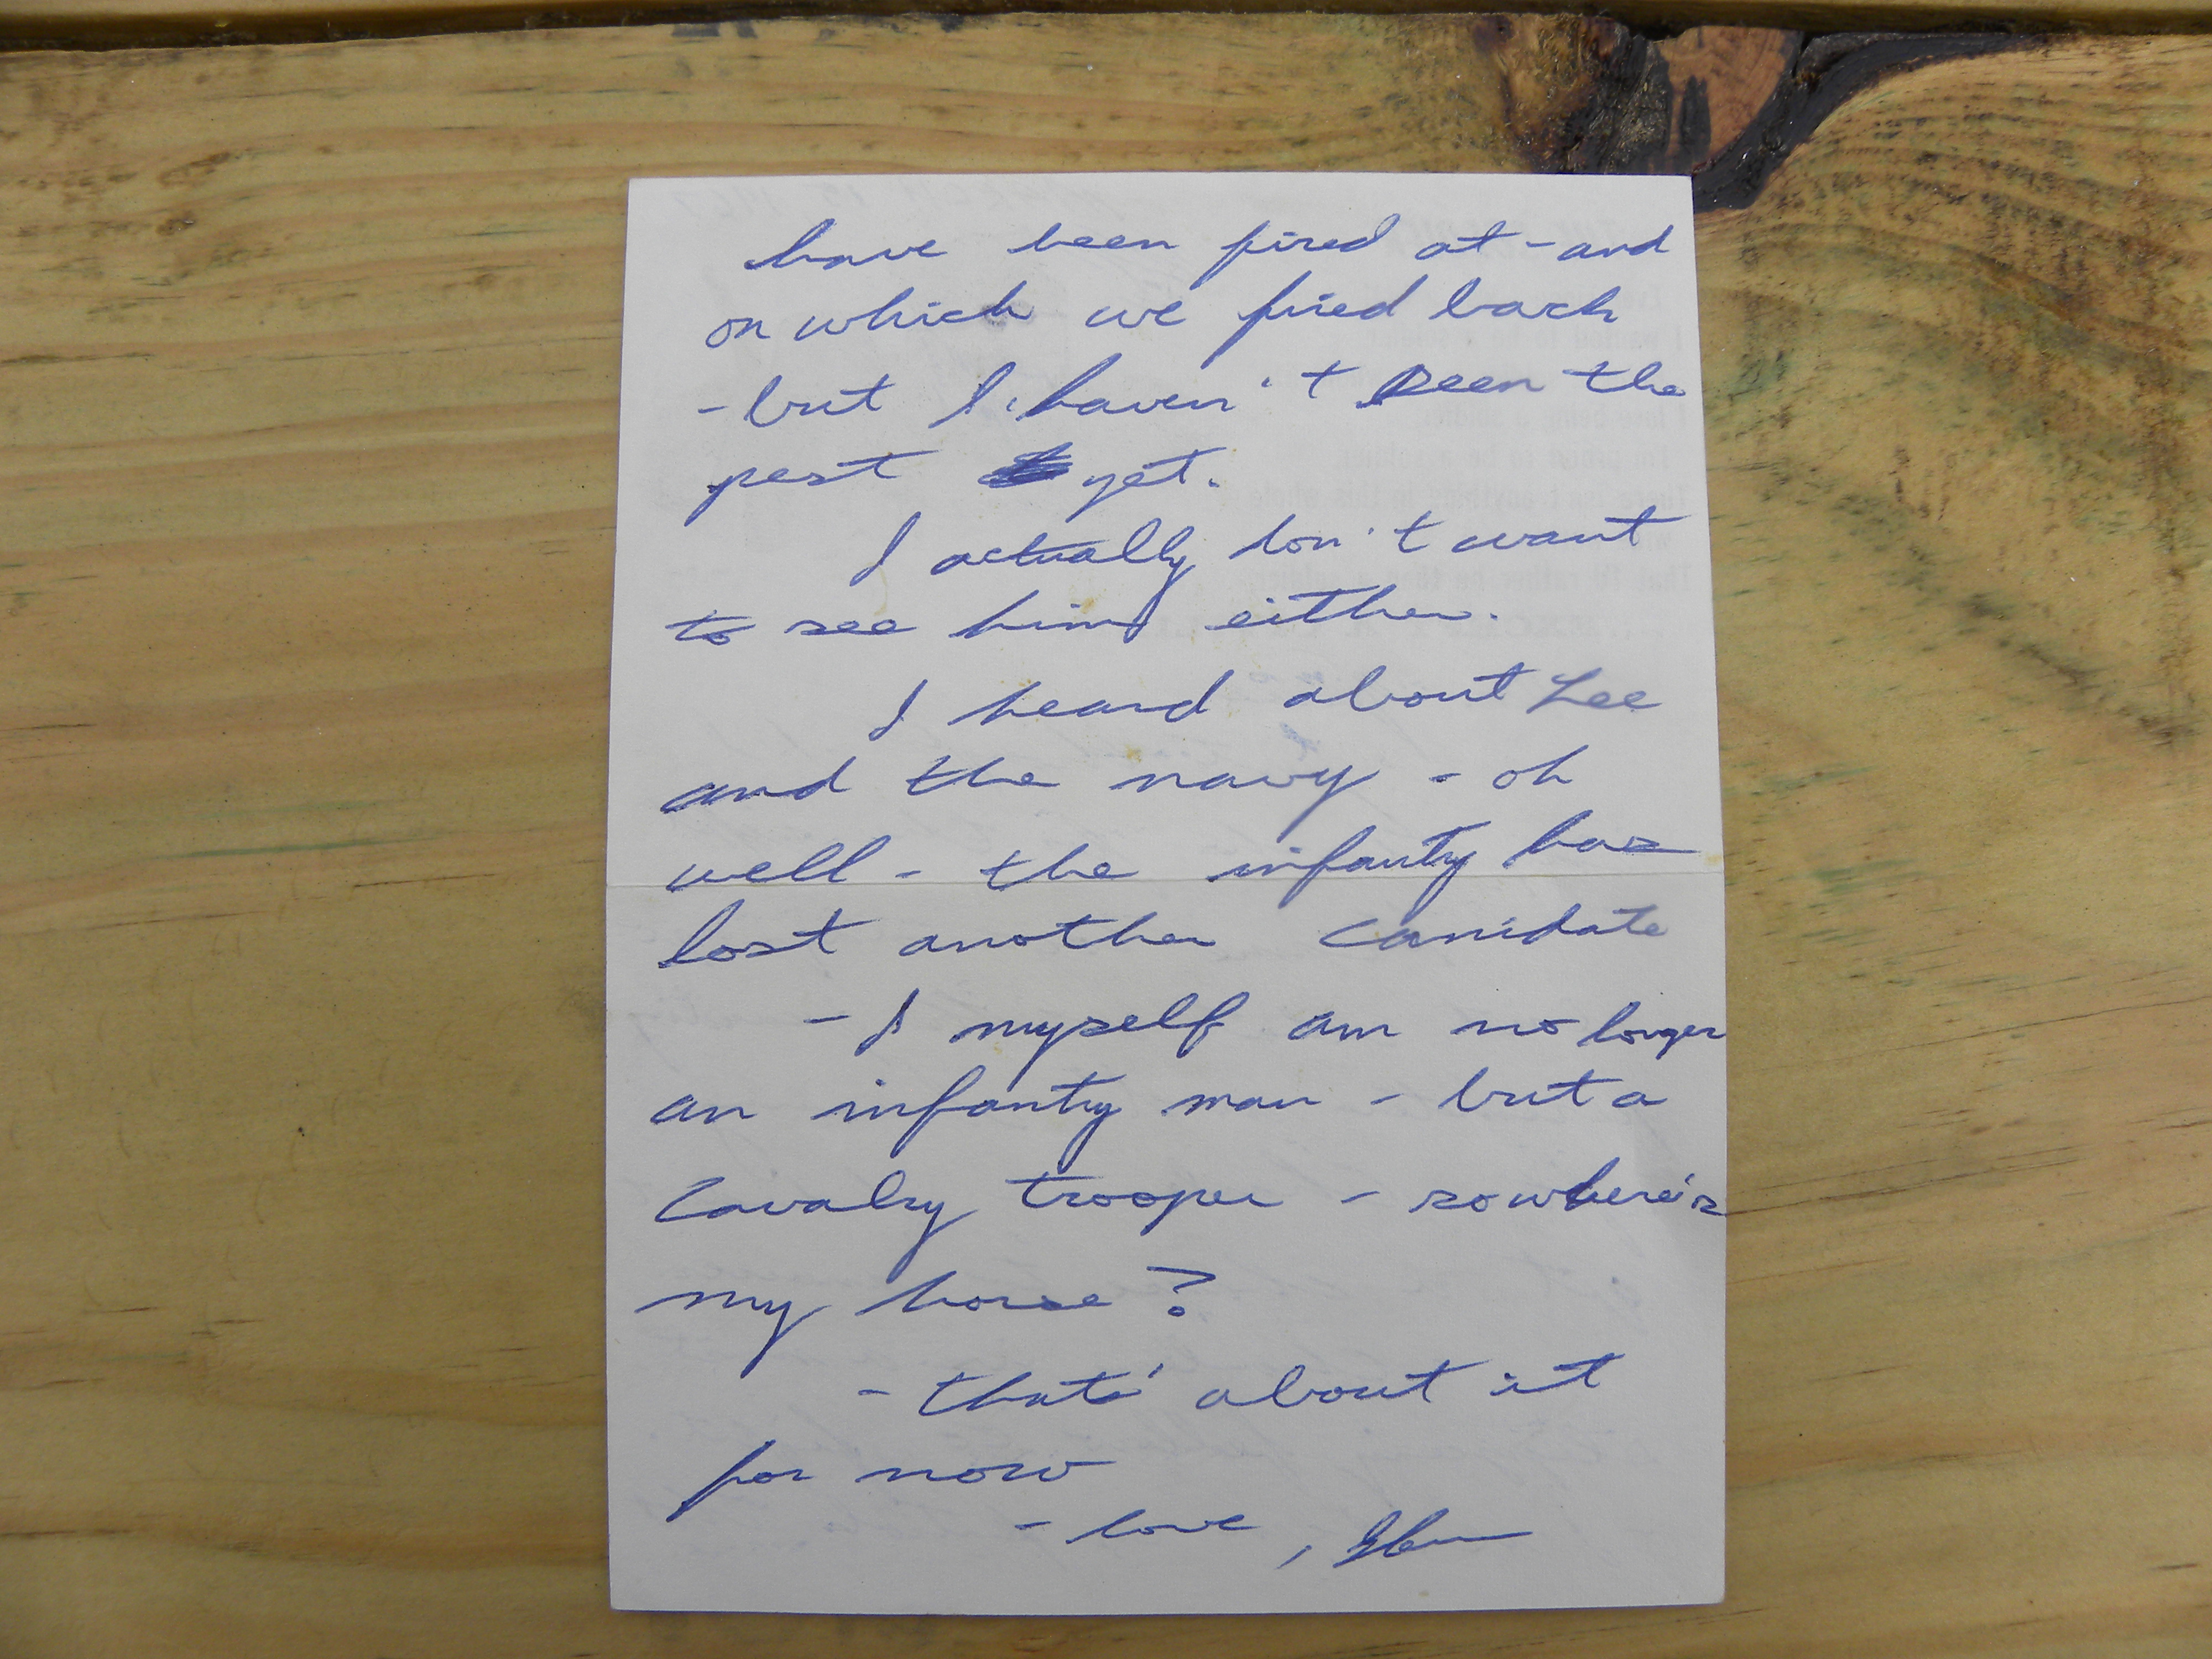 have been fired at - and
on which we fired back
- but I haven't seen the
pest yet.
I actually don't want
to see him either.
I heard about Lee
and the navy - oh
well - the infanty has
lost another canidate
- I myself am no longer
an infanty man - but a
Cavalry trooper - so where's
my horse?
- thats' about it
for now
- love, Glen